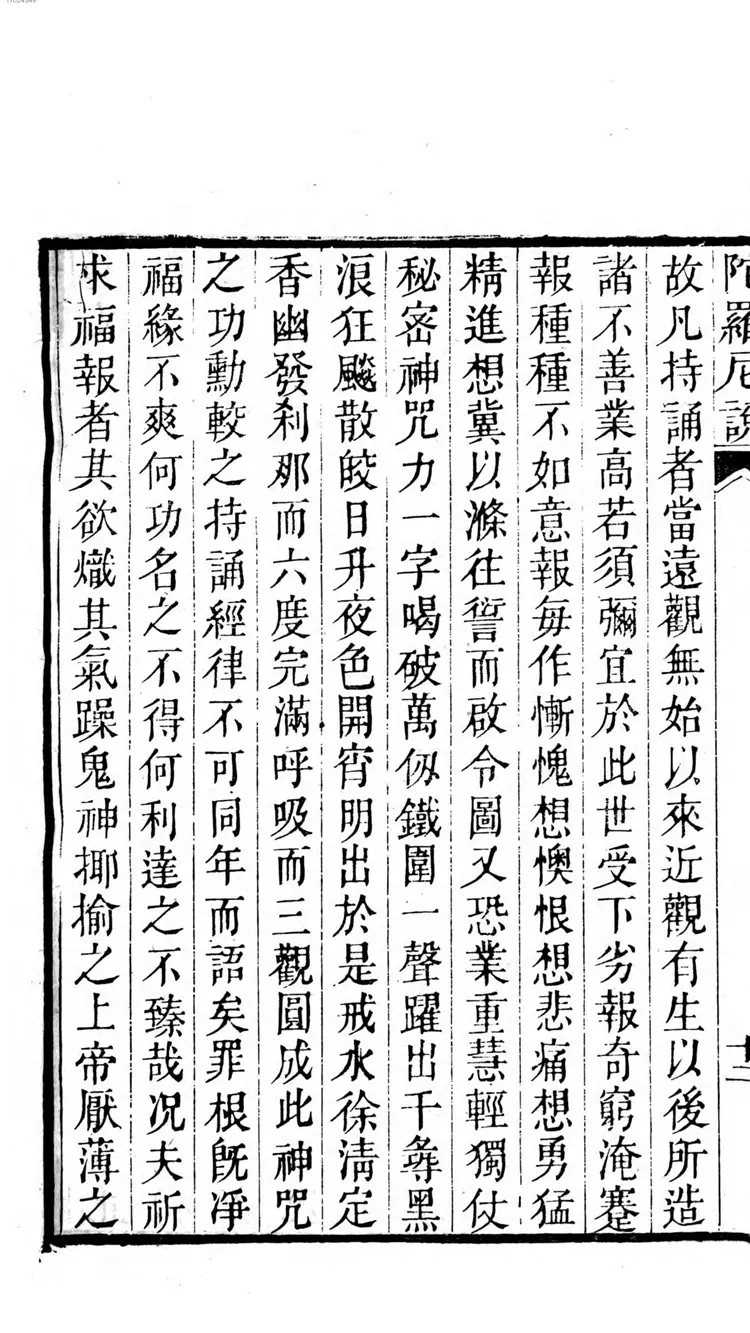 陀羅尼説
十二
故凡持誦者當遠觀無始以來近觀有生以後所造
諸不善業高若須彌宜於此世受下劣報奇窮淹蹇
報種種不如意報每作慚愧想懊恨想悲痛想勇猛
精進想冀以滌往諐而啟令圖又恐業重慧輕獨仗
秘密神咒力一字喝破萬仭鐵圍一聲躍出千尋黑
浪狂飈散皎日升夜色開宵明出於是戒水徐淸定
香幽發刹那而六度完滿呼吸而三觀圓成此神咒
之功勳較之持誦經律不可同年而語矣罪根旣凈
福緣不爽何功名之不得何利達之不臻哉况夫祈
求福報者其欲熾其氣躁鬼神揶揄之上帝厭薄之